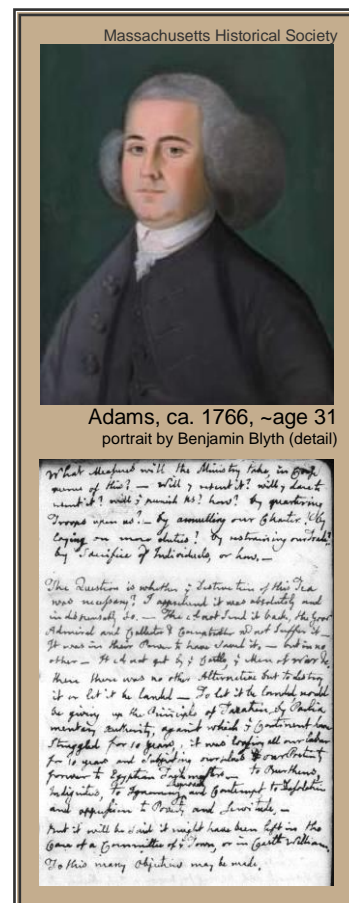 Massachusetts Historical Society
Adams, ca. 1766, ~age 31
portrait by Benjamin Blyth (detail)
What Measures will the Ministry take, in Conse
quence of this? — Will y resent it? will y dare to
resent it? will y punish us? how? by quartering
Troops upon us? — by annulling our Charter? by
laying on more duties? by restraining our Trade?
by Sacrifice of Individuals, or how. —
The Question is whether y Destruction of this Tea
was necessary? I apprehend it was absolutely and
indispensably so. — not send it back, the Govr
Admiral and Collector & Comptroller not suffer it —
It was in their Power to have saved it, — but in no
other — It not get by y Castle, y Men of War &c.
then there was no other Alternative but to destroy
it or let it be landed — To let it be landed would
be giving up the Principle of Taxation by Parlia
mentary Authority, against which y Continent have
struggled for 10 years, it was loosing all our labour
for 10 years and subjecting ourselves & our Posterity
forever to Egyptian Taskmasters — to Burthens,
Indignities, to Ignominy, Reproach and Contempt to Desolation
and oppression to Poverty and Servitude. —
But it will be said it might have been left in the
Care of a Committee of y Town, or in Castle William.
To this many Objections may be made.